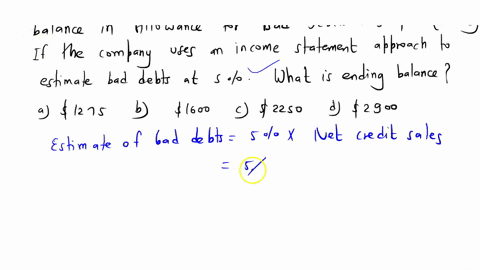 balance in Allowance for Bad
If the company uses an income statement approach to
estimate bad debts at 5%. What is ending balance?
a) $1275 b) $1600 c) $2250 d) $2900
Estimate of bad debts = 5% x Net credit sales
= 5/